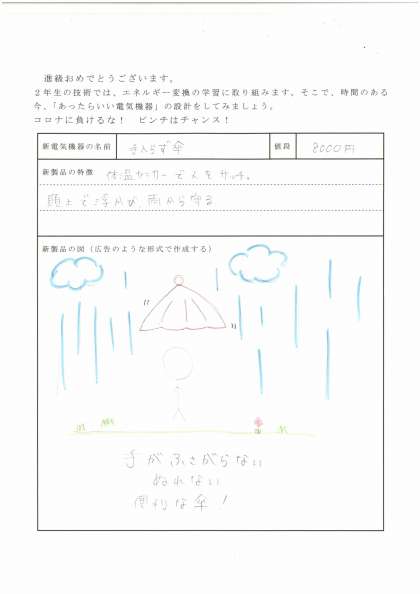 進級おめでとうございます。
2年生の技術では、エネルギー変換の学習に取り組みます。そこで、時間のある
今、「あったらいい電気機器」の設計をしてみましょう。
コロナに負けるな！　ピンチはチャンス！
新電気機器の名前　手入らず傘　値段　8000円
新製品の特徴　体温センサーで人をサッチ。
頭上で浮かび、雨から守る
新製品の図（広告のような形式で作成する）
手がふさがらない
ぬれない
便利な傘！